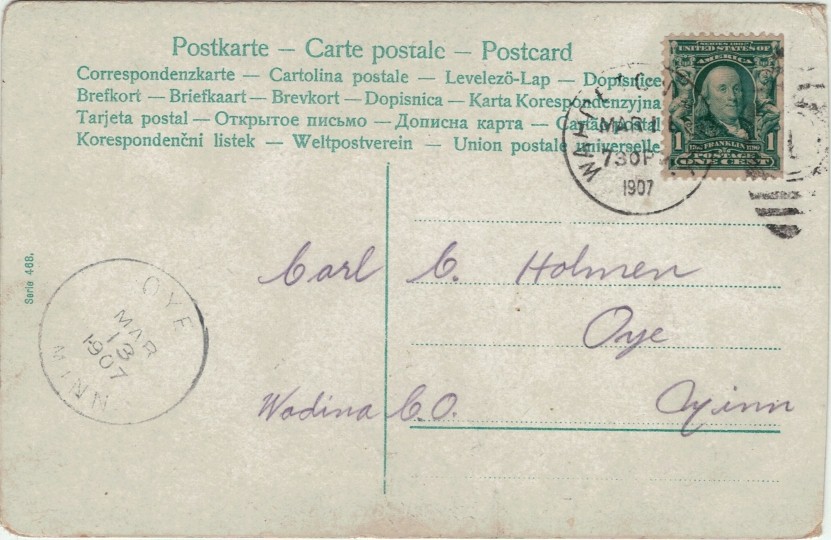 Postkarte — Carte postale — Postcard
Correspondenzkarte — Cartolina postale — Levelező-Lap — Dopisnice
Brefkort — Briefkaart — Brevkort — Dopisnica — Karta Korespondenzyjna
Tarjeta postal — Открытое письмо — Дописна карта — Cartão postal
Korespondenčni listek — Weltpostverein — Union postale universelle
SERIES 1902
UNITED STATES OF
AMERICA
1 FRANKLIN 1
POSTAGE
ONE CENT
MAR
730P
1907
Carl C. Holmen
Oye
Wadina C.O. Minn
Serie 468.
OYE
MAR
13
1907
MINN